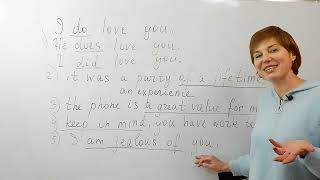 I do love you.
1) He does love you.
I did love you.
2) it was a party of a lifetime
an experience
3) the phone is a great value for m
4) keep in mind, you have work to
5) I am jealous of you.